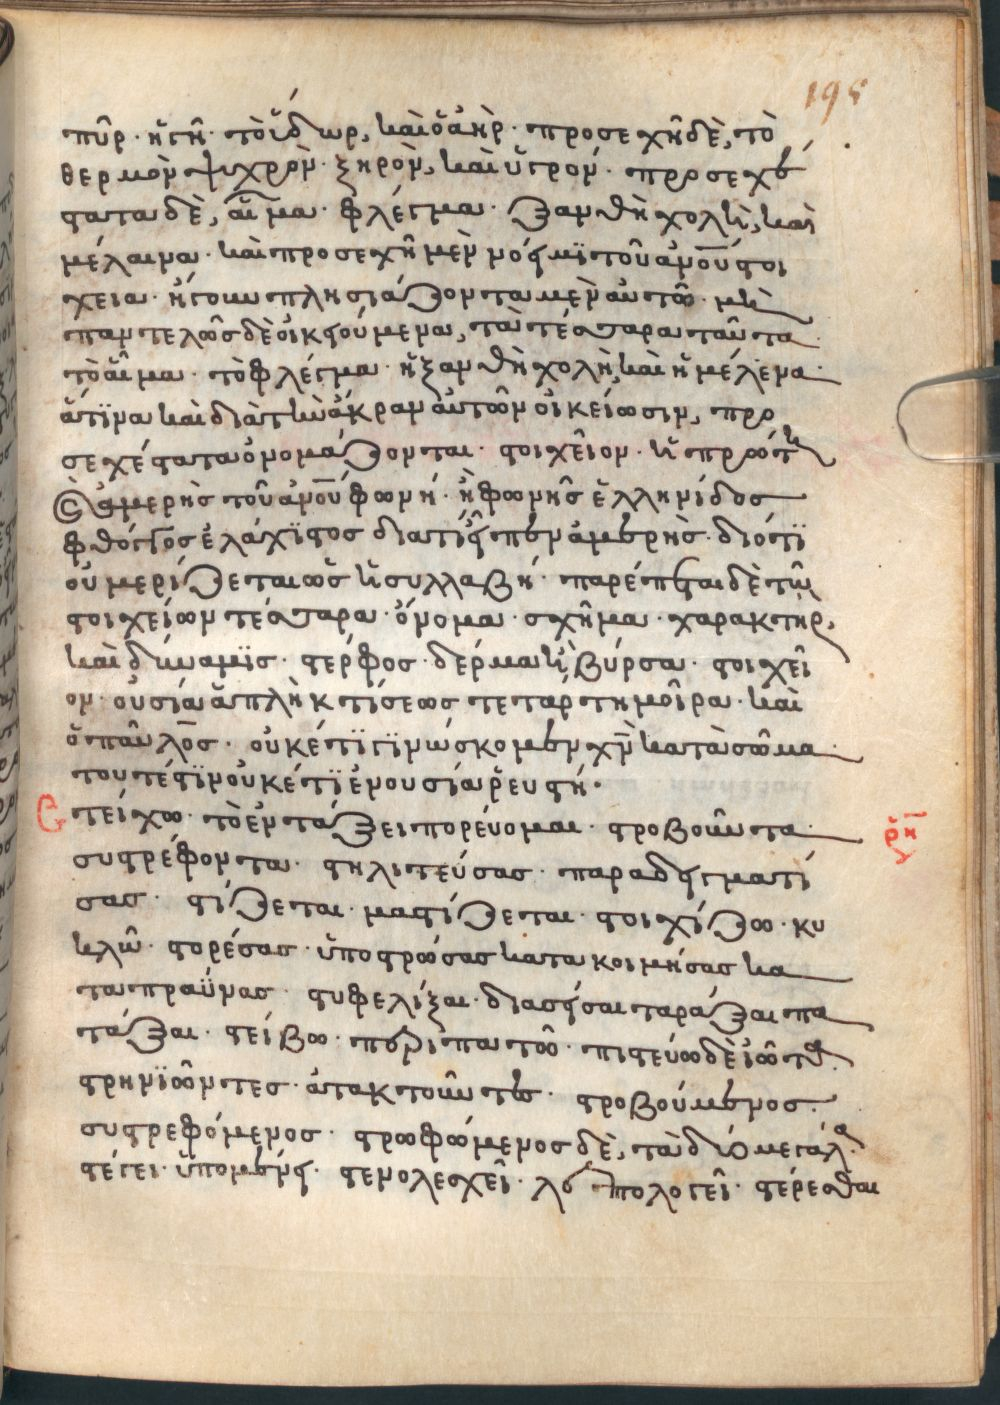 195
πῦρ · ἡ γῆ · τὸ ὕδωρ, καὶ ὁ ἀήρ · προσεχῆ δὲ, τὸ
θερμὸν ψυχρὸν · ξηρὸν, καὶ ὑγρόν · προσεχέ
στατα δὲ, αἷμα · φλέγμα · ξανθὴ χολὴ, καὶ
μέλαινα · καὶ προσεχῆ μὲν τοῦ ἀνου στοι
χεια · ἤγουν πλησιάζοντα μὲν αὐτῶ · μὴ
παντελῶς δὲ οἰκούμενα, τὰ τέσσαρα ταῦτα
τὸ αἷμα · τὸ φλέγμα · ἡ ξανθὴ χολὴ, καὶ ἡ μέλενα ·
ἅτϊνα καὶ διὰ τὴν ἄκραν αὐτῶν οἰκείωσιν, προ
σεχέστατα ὀνομάζονται · στοιχεῖον · ἡ πρώτη
ἀμερὴς τοῦ ἀνου φωνή · ἢ φωνῆς ἑλληνίδος
φθόγγος ἐλάχϊστος διατί ἀμερὴς · διότϊ
οὐ μερίζεται ὡς ἡ συλλαβή · παρέπεται δὲ τῶ
στοιχείων τέσσαρα · ὄνομα · σχῆμα · χαρακτήρ,
καὶ δύναμϊς · στέρφος · δέρμα ἢ βύρσα · στοιχεῖ
ον · οὐσία ἁπλὴ κτίσεως τεταρτημοῖρα · καὶ
ὁ παῦλος · οὐκέτϊ γϊνώσκομεν χν κατὰ σῶμα ·
τουτέστϊν οὐκέτϊ ἐν οὐσία ῥευστῆ ·
στείχω · τὸ ἐν τάξει πορεύομαι · στροβοῦντα
ρκ
συστρέφοντα · στηλιτεύσας · παραδειγματί
σας · στίζεται · μαστίζεται · στοιχίζω · κυ
κλῶ · στορέσας · ὑποστρώσας κατακοιμήσας κα
ταπραΰνας · στυφελίξαι · διασεῖσαι ταράξαι πα
τάξαι · στείβω · περιπατῶ · πιστεύω δὲ
στρηνϊῶντες · ἀτακτοῦντες · στροβούμενος ·
συστρεφόμενος · στρωφώμενος δὲ, τὰ δύο μεγάλα
στέγει · ὑπομένει · στενολεσχεῖ · λεπτολογεῖ · στέρεσθαι